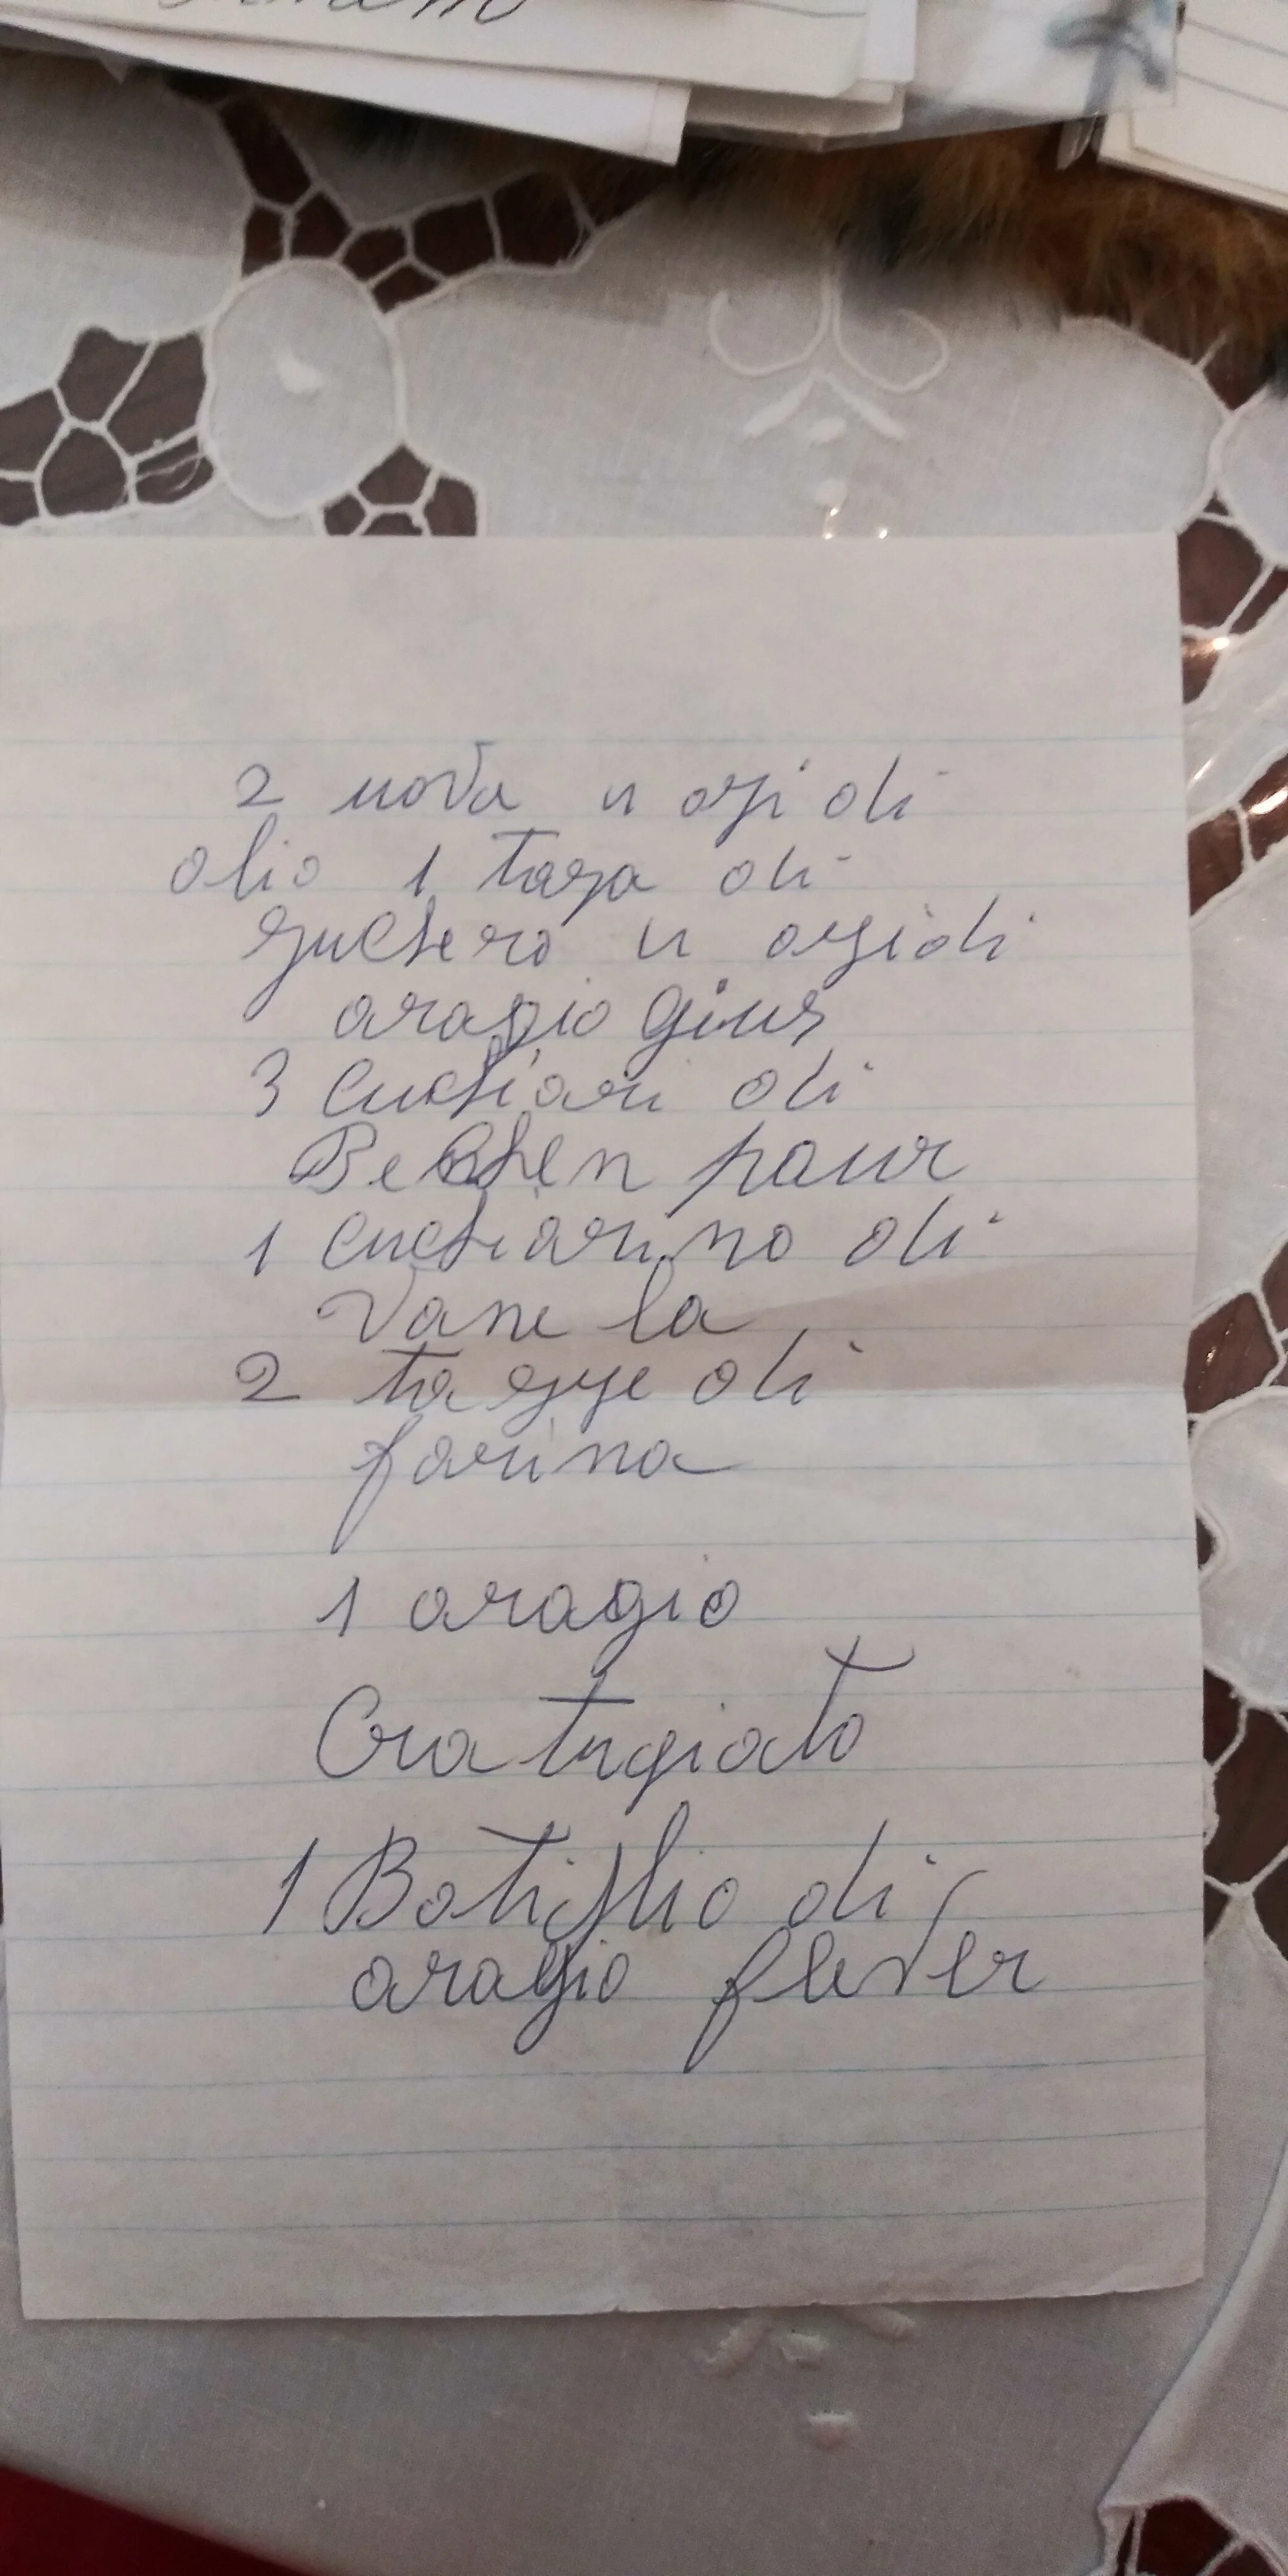 2 uova u ozi di
olio 1 taza di
zuchero u ozi di
aragio gius
3 cuchiari di
Bechen paur
1 cuchiarino di
Vane la
2 ta zze di
farina
1 aragio
Gra tugiato
1 Botiglio di
aragio flever